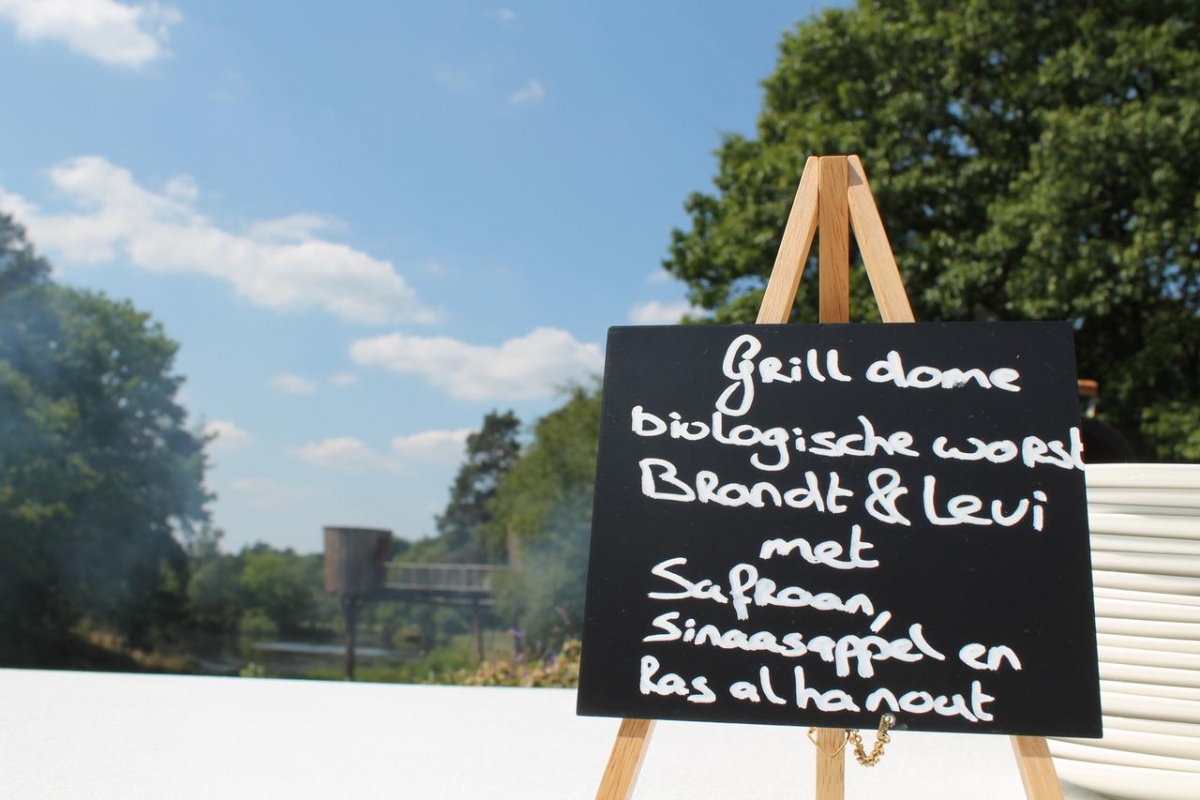 Grill dome
biologische worst
Brandt & Levi
met
Safraan,
Sinaasappel en
Ras al hanout